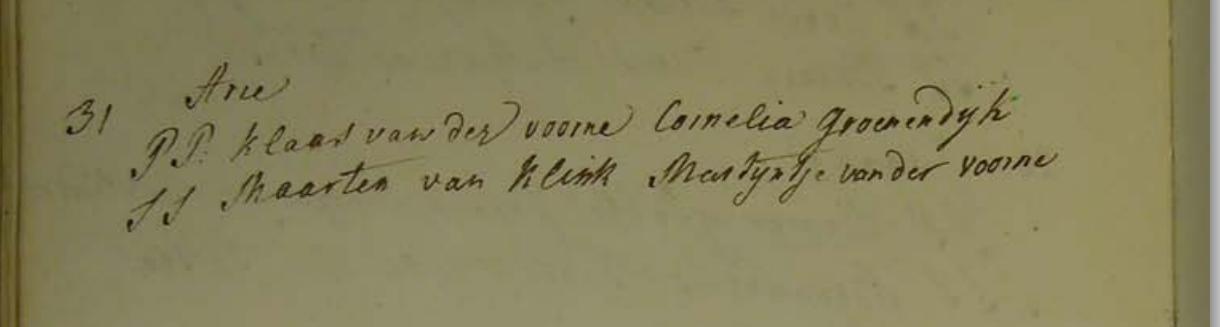 Arie
31 PP. Klaas van der voorne Cornelia Groenendijk
SS Maarten van Klink Martijntje van der voorne